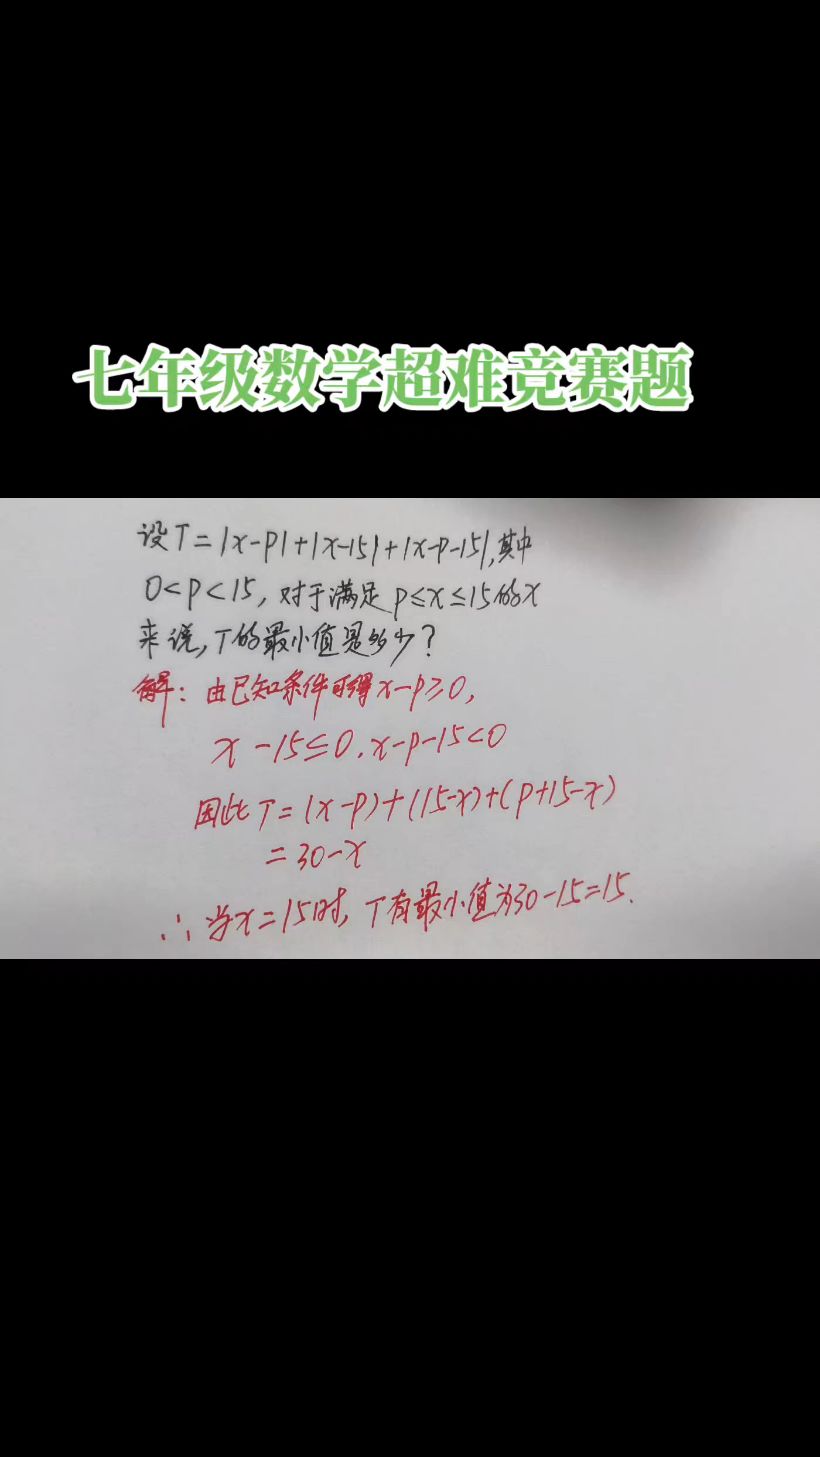 七年级数学超难竞赛题
设T=|x-p|+|x-15|+|x-p-15|,其中
0<p<15,对于满足p≤x≤15的x
来说,T的最小值是多少?
解:由已知条件可得x-p≥0,
x-15≤0,x-p-15<0
因此T=(x-p)+(15-x)+(p+15-x)
=30-x
∴当x=15时,T有最小值为30-15=15.